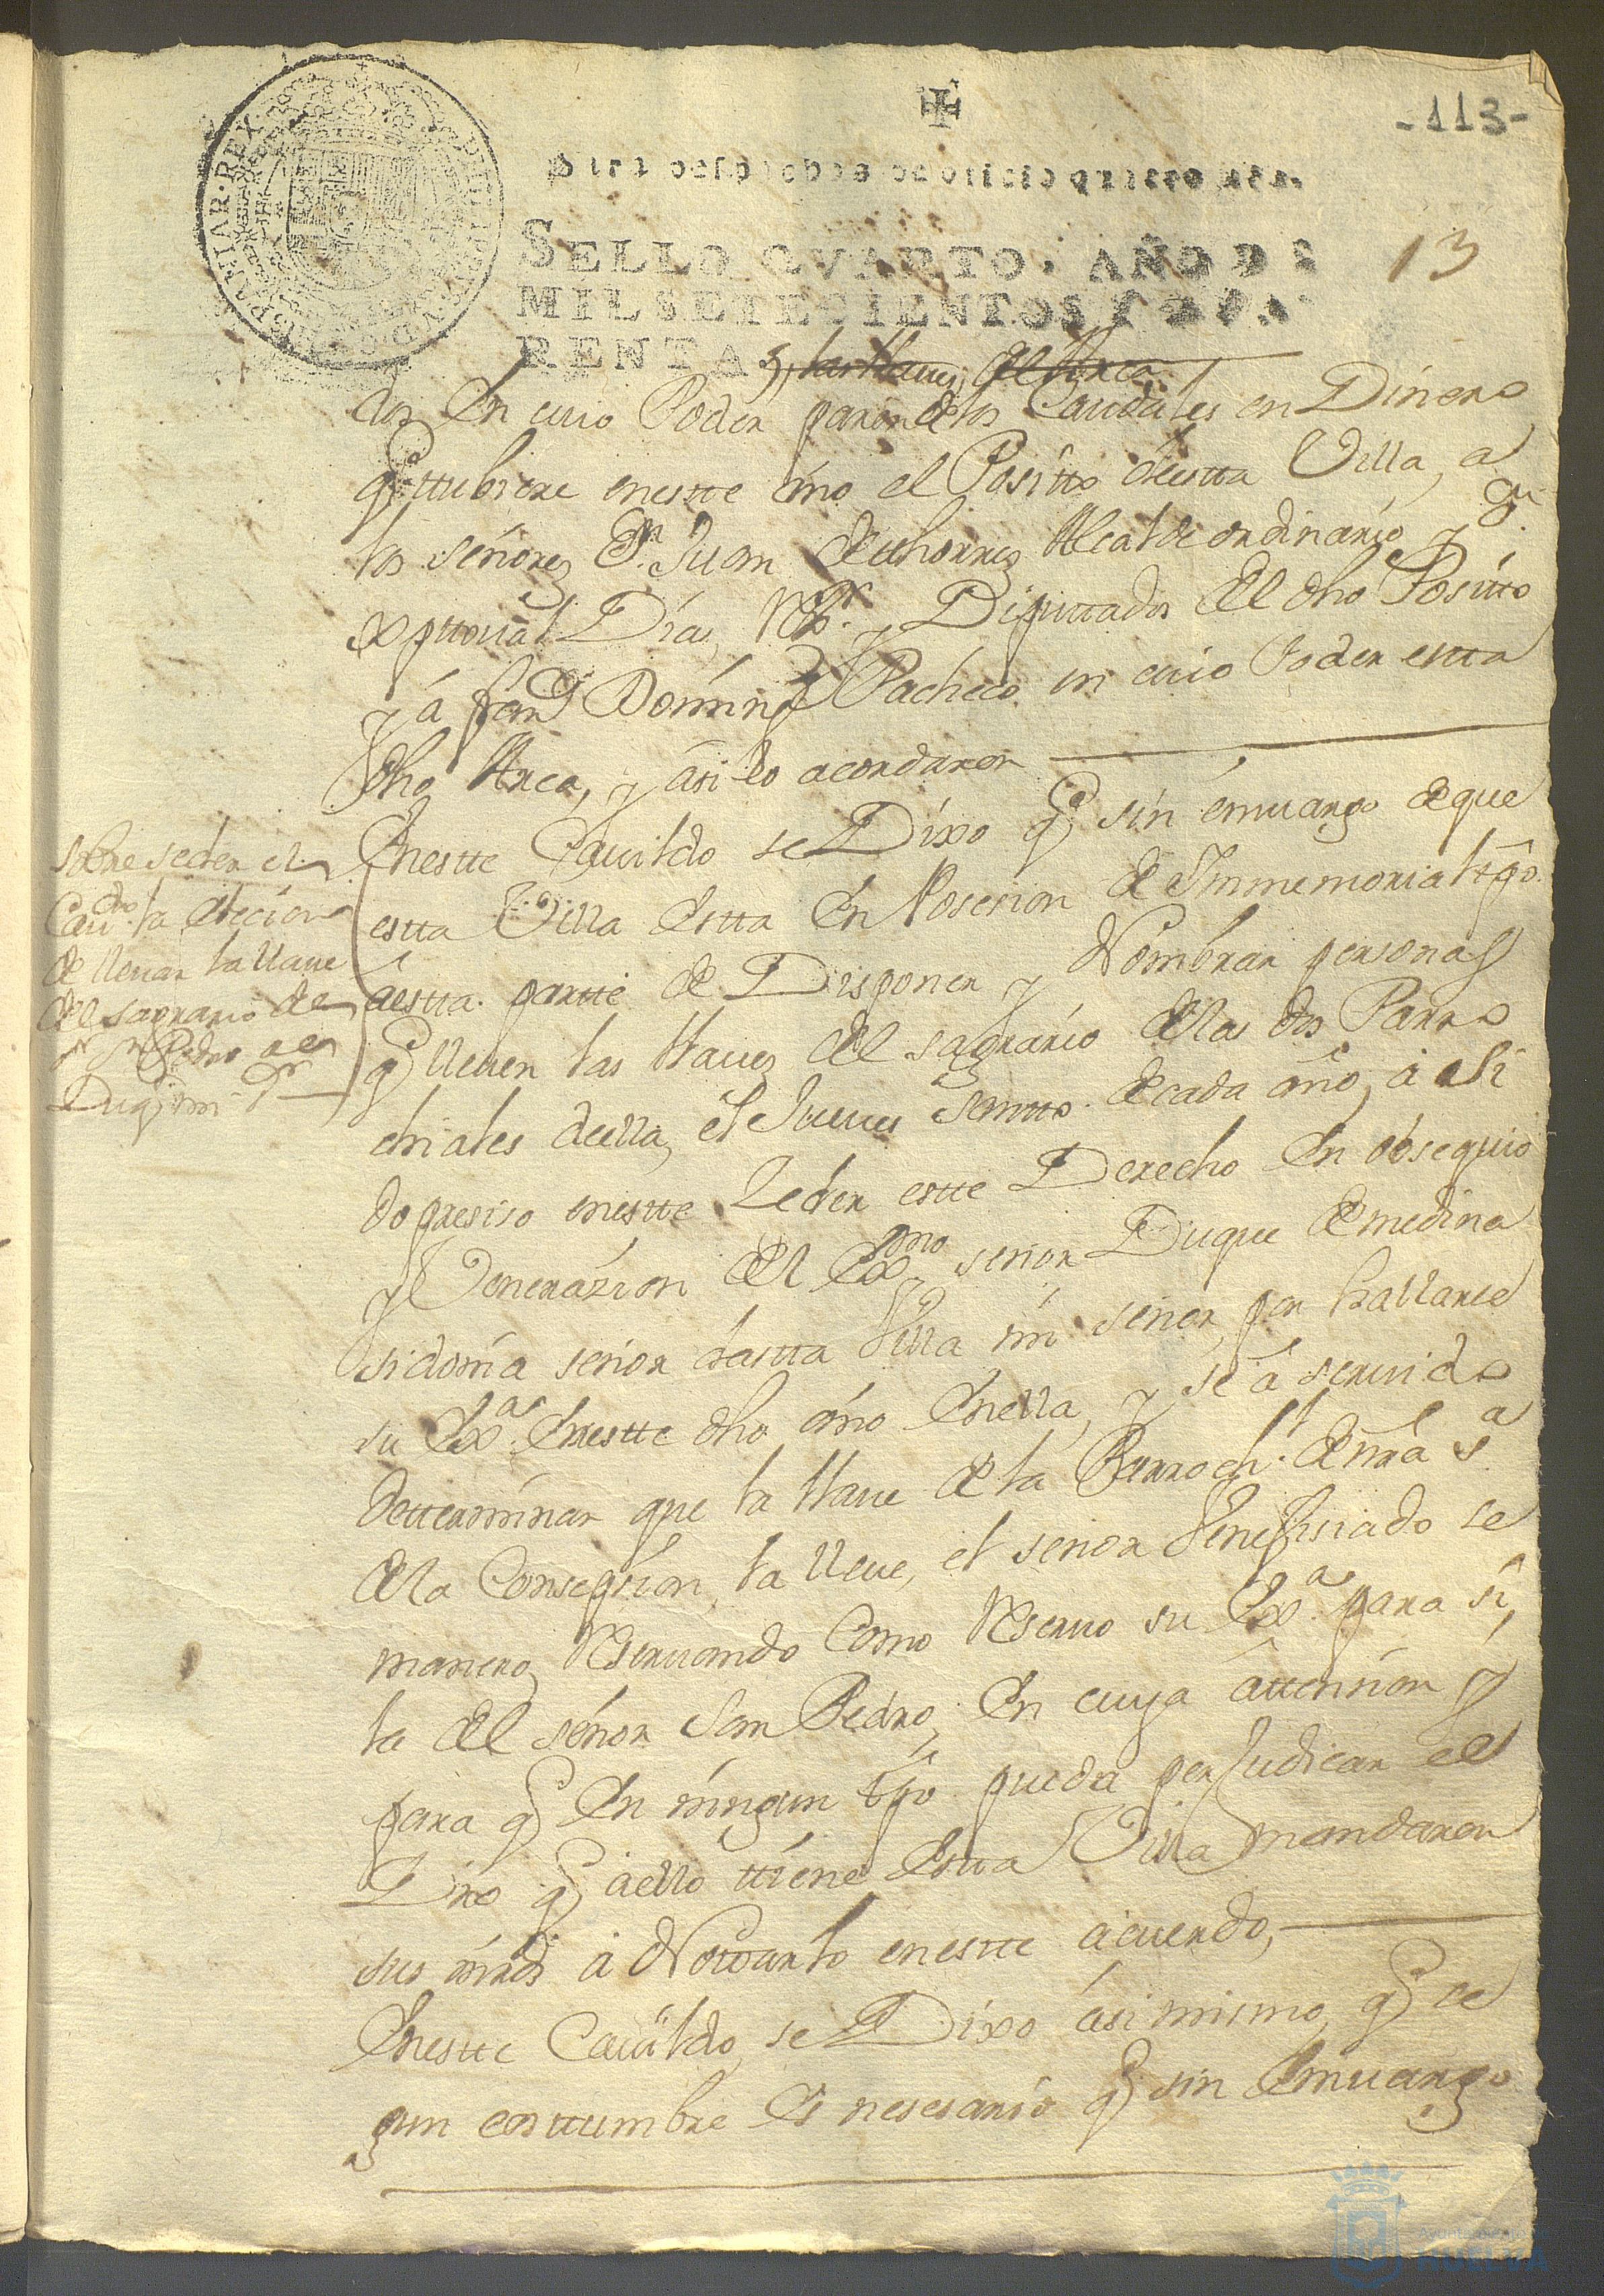 -113-
Para despachos de oficio quatro mrs.
SELLO QVARTO, AÑO DE
MIL SETECIENTOS Y
RENTA
13
y las llaves del Arca
dos En cuio Poder paren dlos Caudales en Dinero
q̃ ttubiere enestte año el Positto deestta Villa, a
los señores Dn. Juan Alcalde ordinario y
Diaz, Rexr. Diputtados del dho Positto
y á Doming Pacheco en cuio Poder estta
dho Arca, y asi lo acordaron
Sobre seder el
Cavdo. la elecion
de llevar la llave
del sagrario de
sr Sn Pedro a el
Duq̃ mi sr
Enestte Cavildo se Dixo q̃ sin emvargo de que
estta Villa estta En Posesion de Immemorial tpõ
aestta partte de Disponer y Nombrar personas
q̃ lleven las llaves del sagrario delas dos Parro
chiales deella, el Jueves Santto de cada año, á Si
do presiso enestte Zeder estte Derecho En obsequio
y Venerazion del Exmo señor Duque de medina
sidonia señor destta Villa mi señor, por hallarse
su Exa. Enestte dho año Enella, y se á servido
detterminar que la llave de la Parroch. de nrã Sa
dela Consepsion, la lleve, el señor Venefisiado se
manero, Reservando Como Reservo su Exa. para si,
la del señor San Pedro; En cuya attension y
para q̃ En ningun tpõ pueda perJudicar el
Dro q̃ aello ttiene Estta Villa mandaron
sus mrds á Nottarlo enestte acuerdo,
Enestte Cavildo, se Dixo ásimismo, q̃ se
gun costtumbre Es nesesario q̃ sin Emvargo
Ayuntamiento de
HUELVA